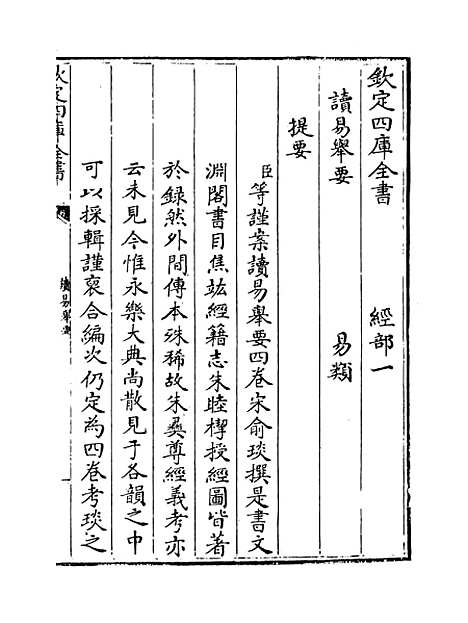 欽定四庫全書 經部一
讀易舉要 易類
提要
臣等謹案讀易舉要四卷宋俞琰撰是書文
淵閣書目焦竑經籍志朱睦㮮授經圖皆著
於録然外間傳本殊稀故朱彞尊經義考亦
云未見今惟永樂大典尚散見于各韻之中
可以採輯謹裒合編次仍定為四卷考琰之
欽定四庫全書
讀易舉要
一